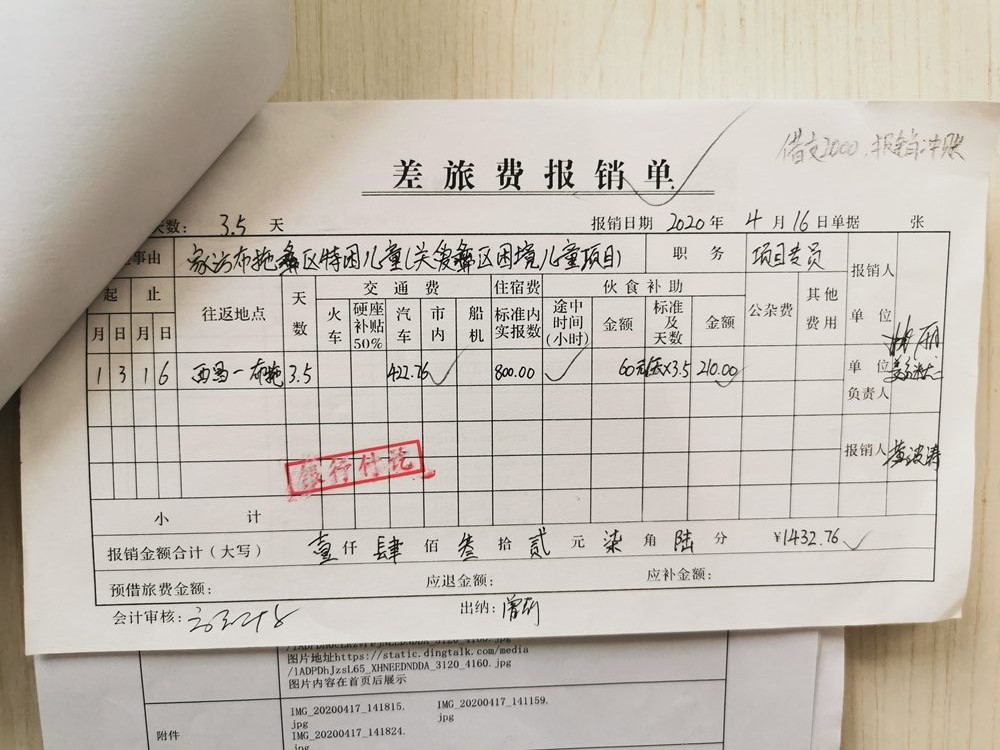 借支2000.报销冲账
差旅费报销单
天数: 3.5 天 报销日期 2020年 4月16日单据 张
事由 家访布拖彝区特困儿童(关爱彝区困境儿童项目) 职务 项目专员 报销人
起 止 往返地点 天数 交通费 住宿费 伙食补助 公杂费 其他费用 单位
月 日 月 日 火车 硬座补贴50% 汽车 市内 船机 标准内实报数 途中时间(小时) 金额 标准及天数 金额
1 3 1 6 西昌—布拖 3.5 422.76 800.00 60元/天×3.5 210.00 单位负责人
报销人
银行付讫
小计
报销金额合计(大写) 壹仟肆佰叁拾贰元柒角陆分 ¥1432.76
预借旅费金额: 应退金额: 应补金额:
会计审核: 出纳:
图片地址https://static.dingtalk.com/media
/lADPDhJzsL65_XHNEEDNDDA_3120_4160.jpg
图片内容在首页后展示
附件
IMG_20200417_141815.jpg IMG_20200417_141159.jpg
IMG_20200417_141824.jpg